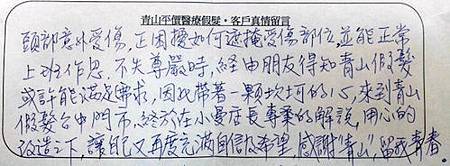 青山平價醫療假髮・客戶真情留言
頭部意外受傷，正困擾如何遮掩受傷部位，並能正常
上班作息，不失尊嚴時，經由朋友得知青山假髮
或許能滿足需求，因此帶著一顆坎坷的心，來到青山
假髮台中門市，終於在小曼店長專業的解說，用心的
改造之下，讓自己又再度充滿自信及希望，感謝"青山"留我青春。